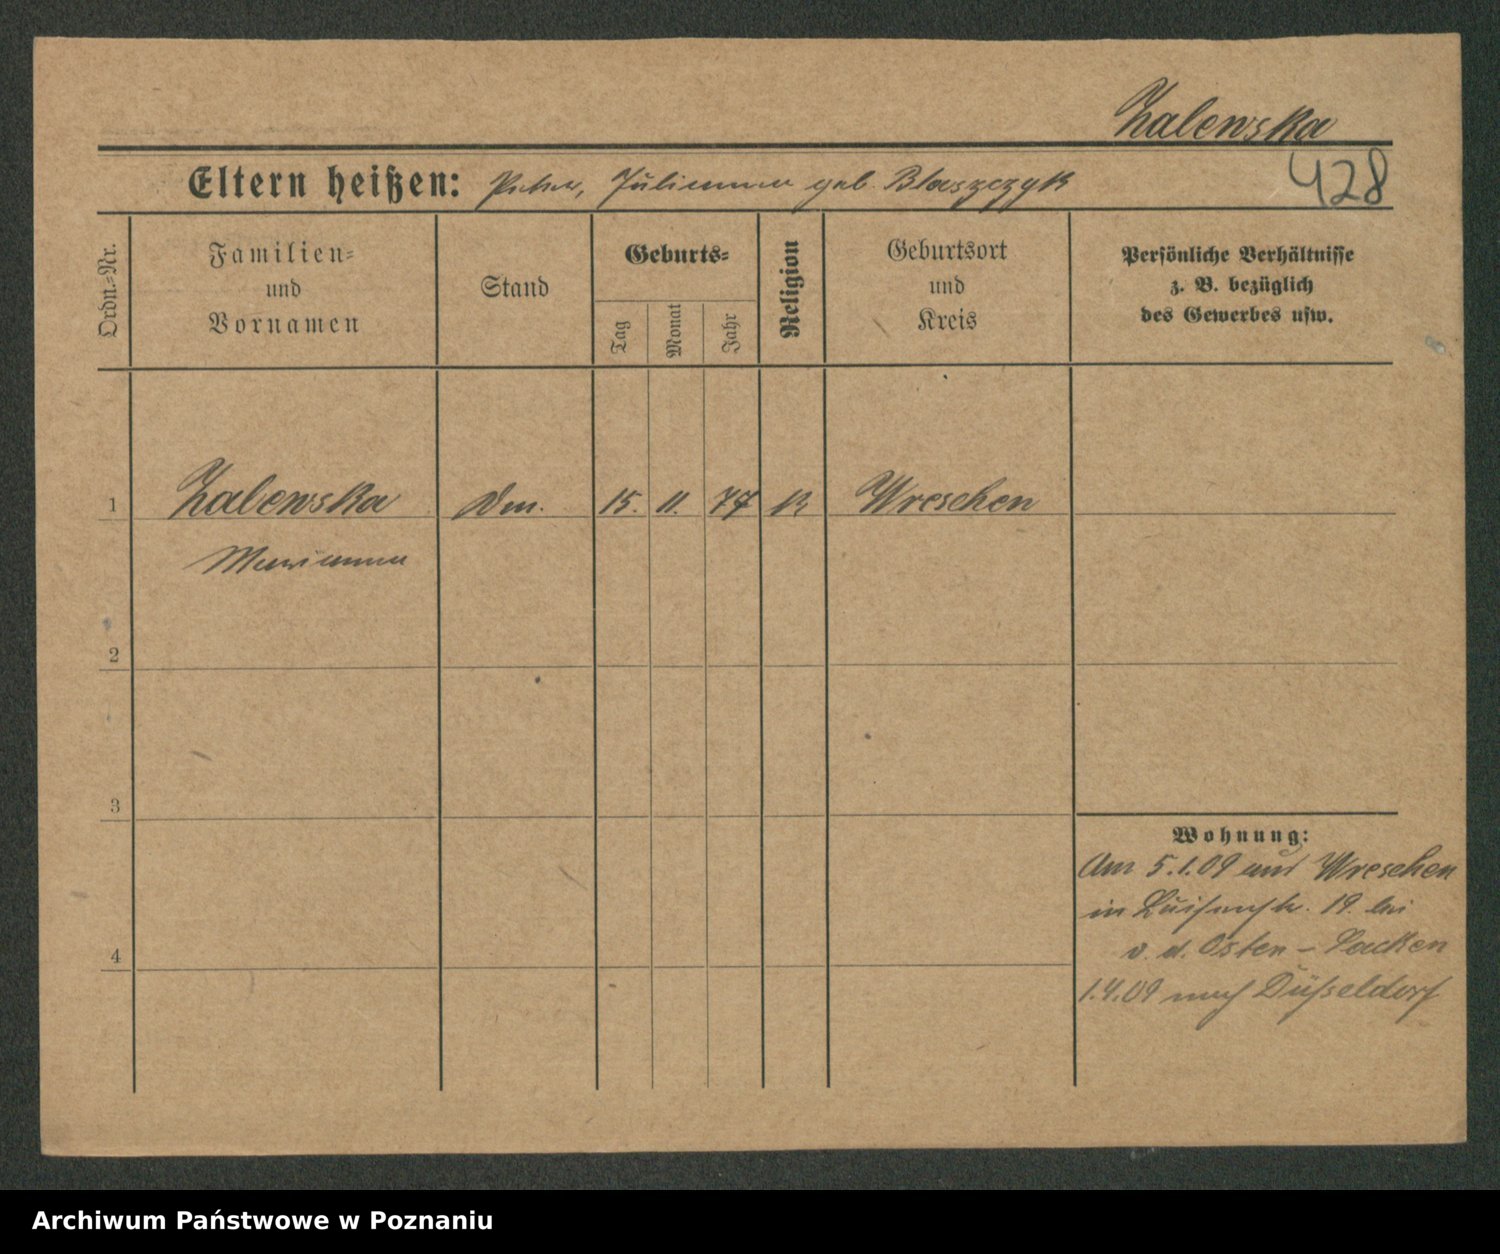 Zalewska
428
Eltern heißen: Peter, Julianna geb. Blaszczyk
Ordn.-Nr.
Familien-
und
Vornamen
Stand
Geburts-
Tag
Monat
Jahr
Religion
Geburtsort
und
Kreis
Persönliche Verhältnisse
z. B. bezüglich
des Gewerbes usw.
1 Zalewska 15. 11. K Wreschen
Marianna
2
3
4
Wohnung:
Am 5.1.09 aus Wreschen
in Luisenstr. 19. bei
v. d. Osten-Sacken
1.4.09 nach Düsseldorf
Archiwum Państwowe w Poznaniu